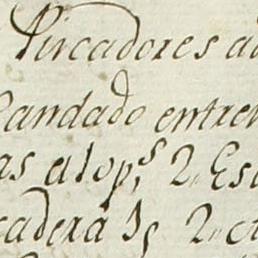 Pircadores a
candado entre
as alop,s 2,, Es
cadera 1, 2,,